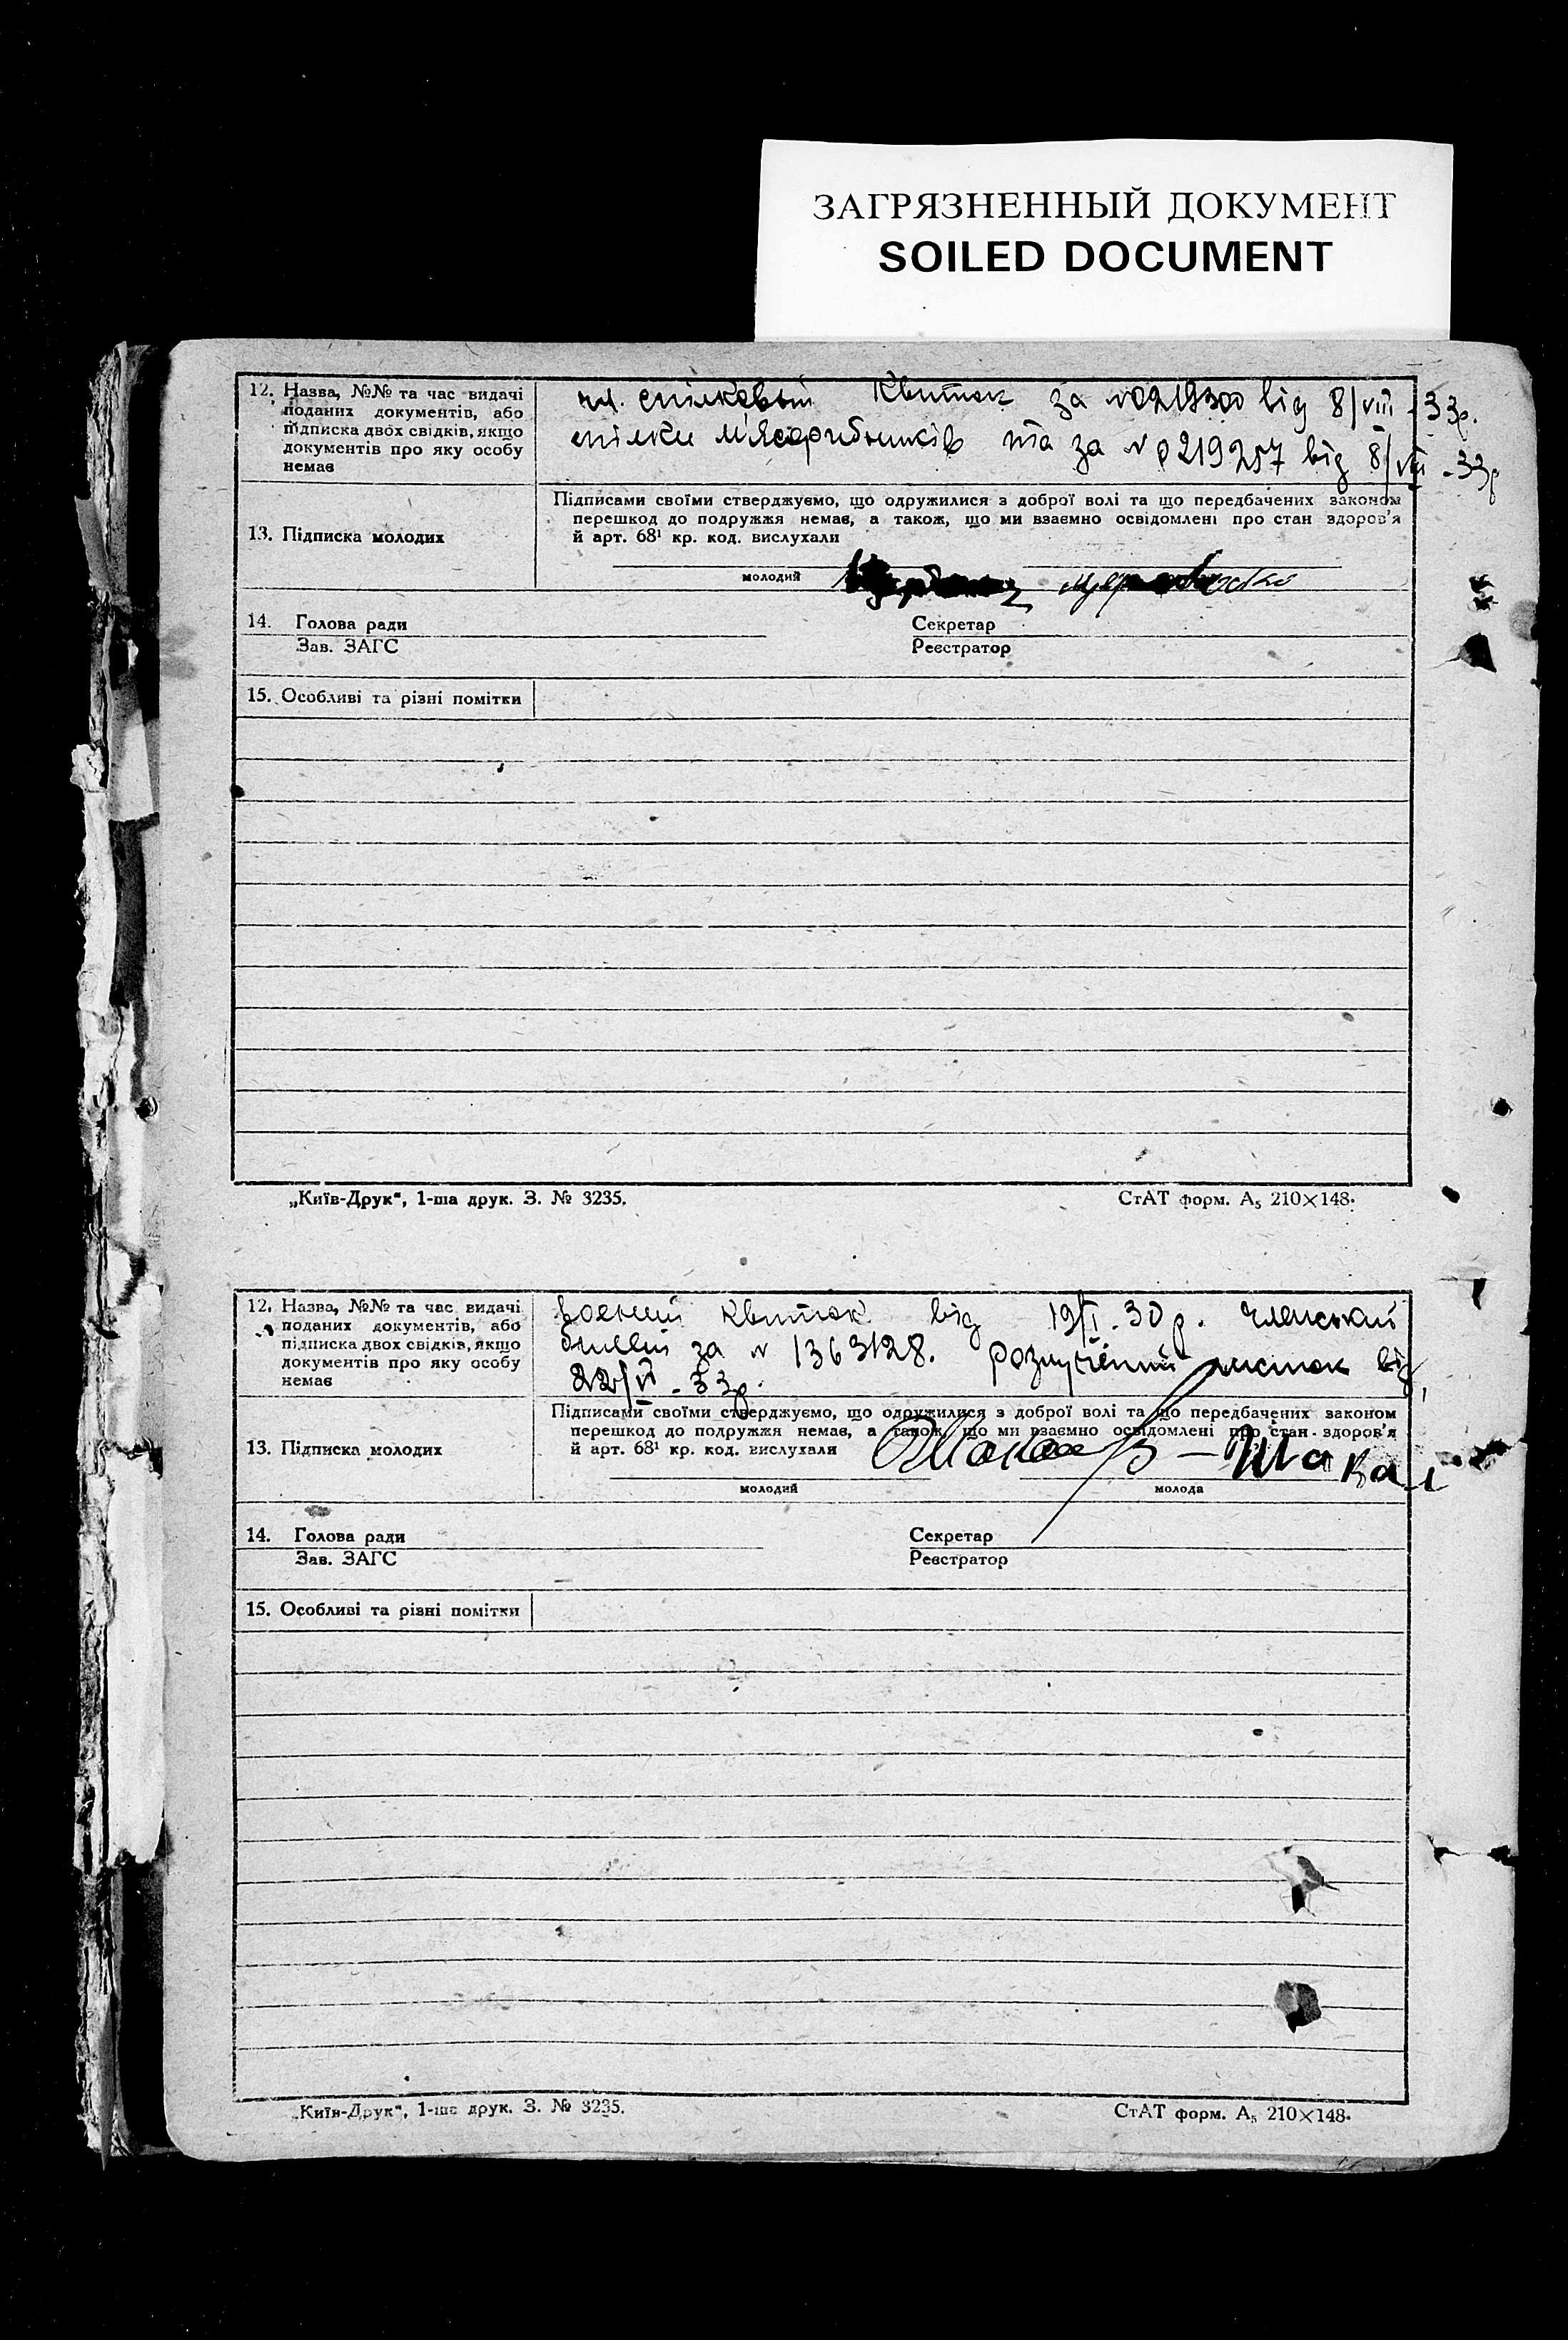 ЗАГРЯЗНЕННЫЙ ДОКУМЕНТ
SOILED DOCUMENT
12. Назва, №№ та час видачі
поданих документів, або
підписка двох свідків, якщо
документів про яку особу
немає
чл. спілковый Квиток за № 0219300 від 8/VIII - 33р.
спілки та за № 0219257 від 8/VIII - 33р
13. Підписка молодих
Підписами своїми стверджуємо, що одружилися з доброї волі та що передбачених законом
перешкод до подружжя немає, а також, що ми взаємно освідомлені про стан здоров'я
й арт. 68¹ кр. код. вислухали
молодий
14. Голова ради
Секретар
Зав. ЗАГС
Реєстратор
15. Особливі та різні помітки
„Київ-Друк“, 1-ша друк. З. № 3235.
СтАТ форм. А₅ 210×148.
12. Назва, №№ та час видачі
поданих документів, або
підписка двох свідків, якщо
документів про яку особу
немає
Воєний квиток від 19/I - 30 р. Членський
за № 1363128. листок від
22/VI - 33р.
13. Підписка молодих
Підписами своїми стверджуємо, що одружилися з доброї волі та що передбачених законом
перешкод до подружжя немає, а також, що ми взаємно освідомлені про стан здоров'я
й арт. 68¹ кр. код. вислухали
молодий
молода
14. Голова ради
Секретар
Зав. ЗАГС
Реєстратор
15. Особливі та різні помітки
„Київ-Друк“, 1-ша друк. З. № 3235.
СтАТ форм. А₅ 210×148.